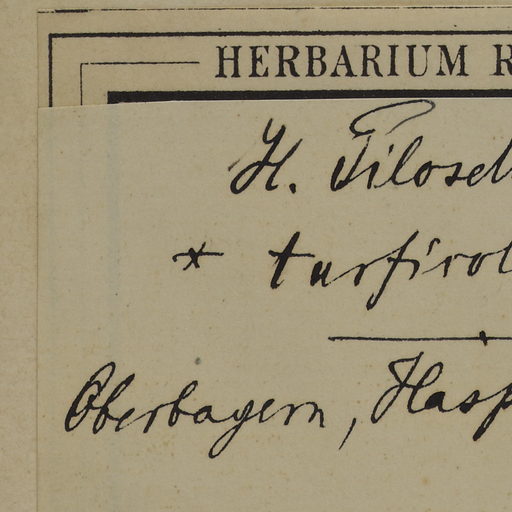 HERBARIUM R
H. Pilosel
* turficol
Oberbayern, Hasp